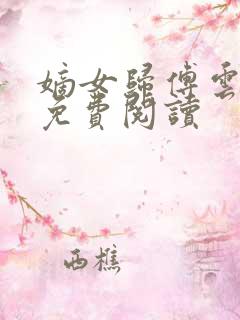 嫡女歸傅雲
免費閱讀
西樵